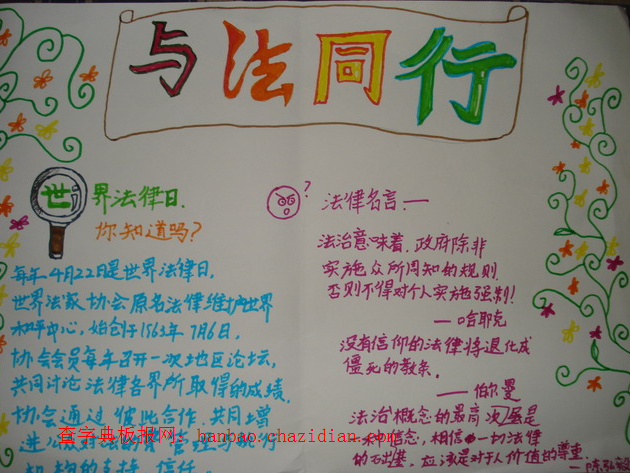 与法同行
世界法律日.
你知道吗?
每年4月22日是世界法律日,
世界法家协会原名法律维护世界
和平中心,始创于1963年7月6日,
协会会员每年召开一次地区论坛,
共同讨论法律各界所取得的成绩.
协会通过彼此合作,共同增
的支持、信任
?
法律名言:—
法治意味着,政府除非
实施众所周知的规则
否则不得对个人实施强制!
—哈耶克
没有信仰的法律将退化成
僵死的教条.
—伯尔曼
法治概念的最高层是
信念,相信一切法律
的基础,应该是对于人价值的尊重.
—陈弘毅
查字典板报网:banbao.chazidian.com